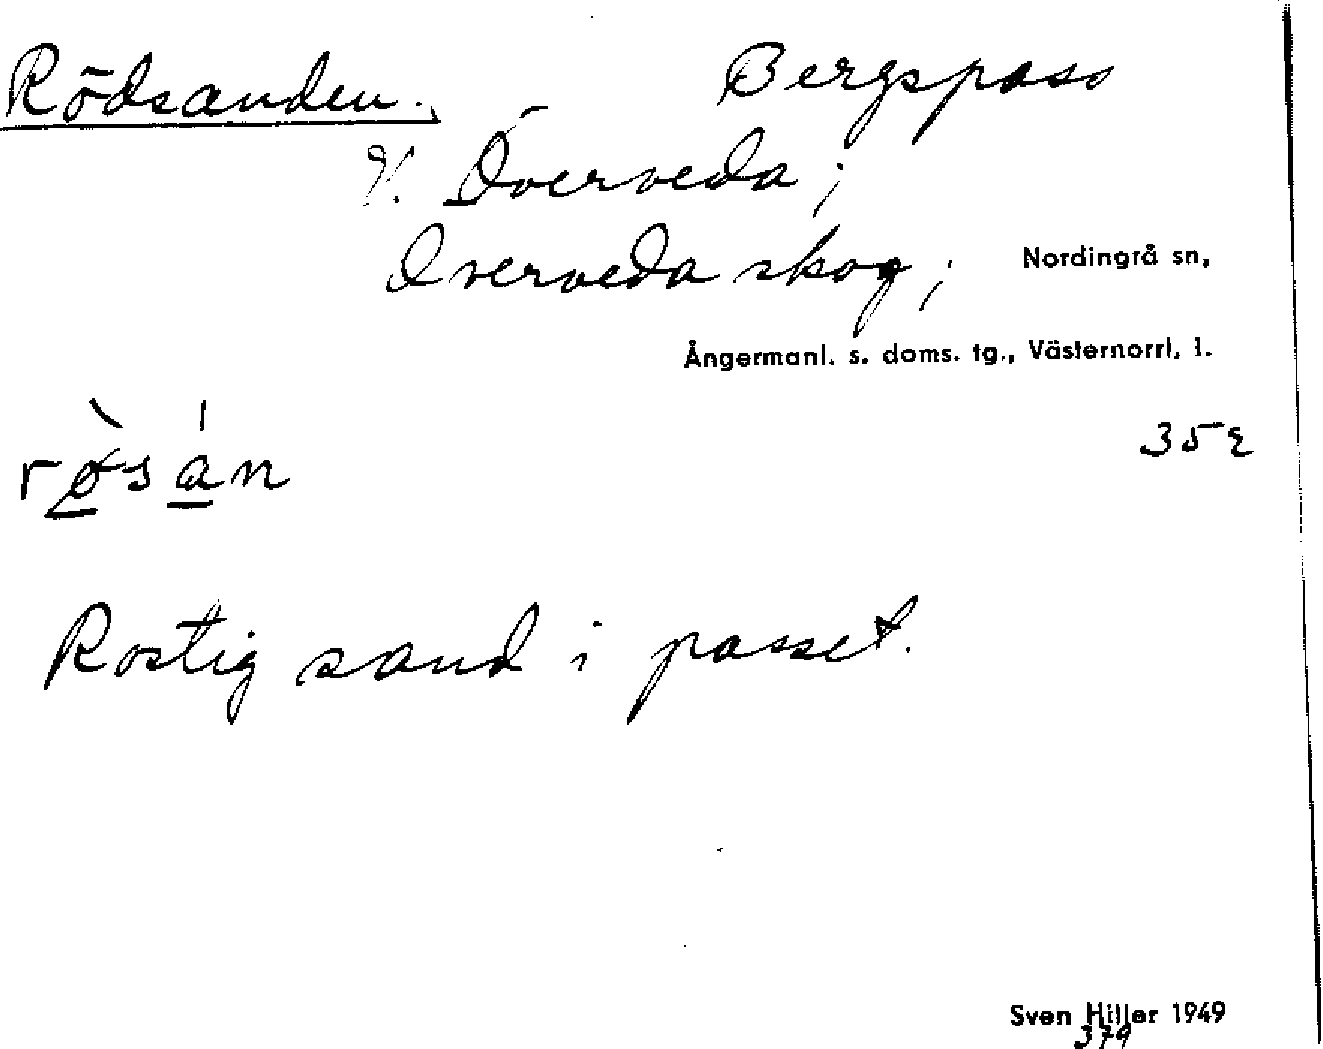 Rödsanden. Bergspass
V. Överveda;
Överveda skog; Nordingrå sn,
Ångermanl. s. doms. tg., Västernorrl. l.
352
rø̀sán
Rostig sand i passet.
Sven Hiller 1949
379